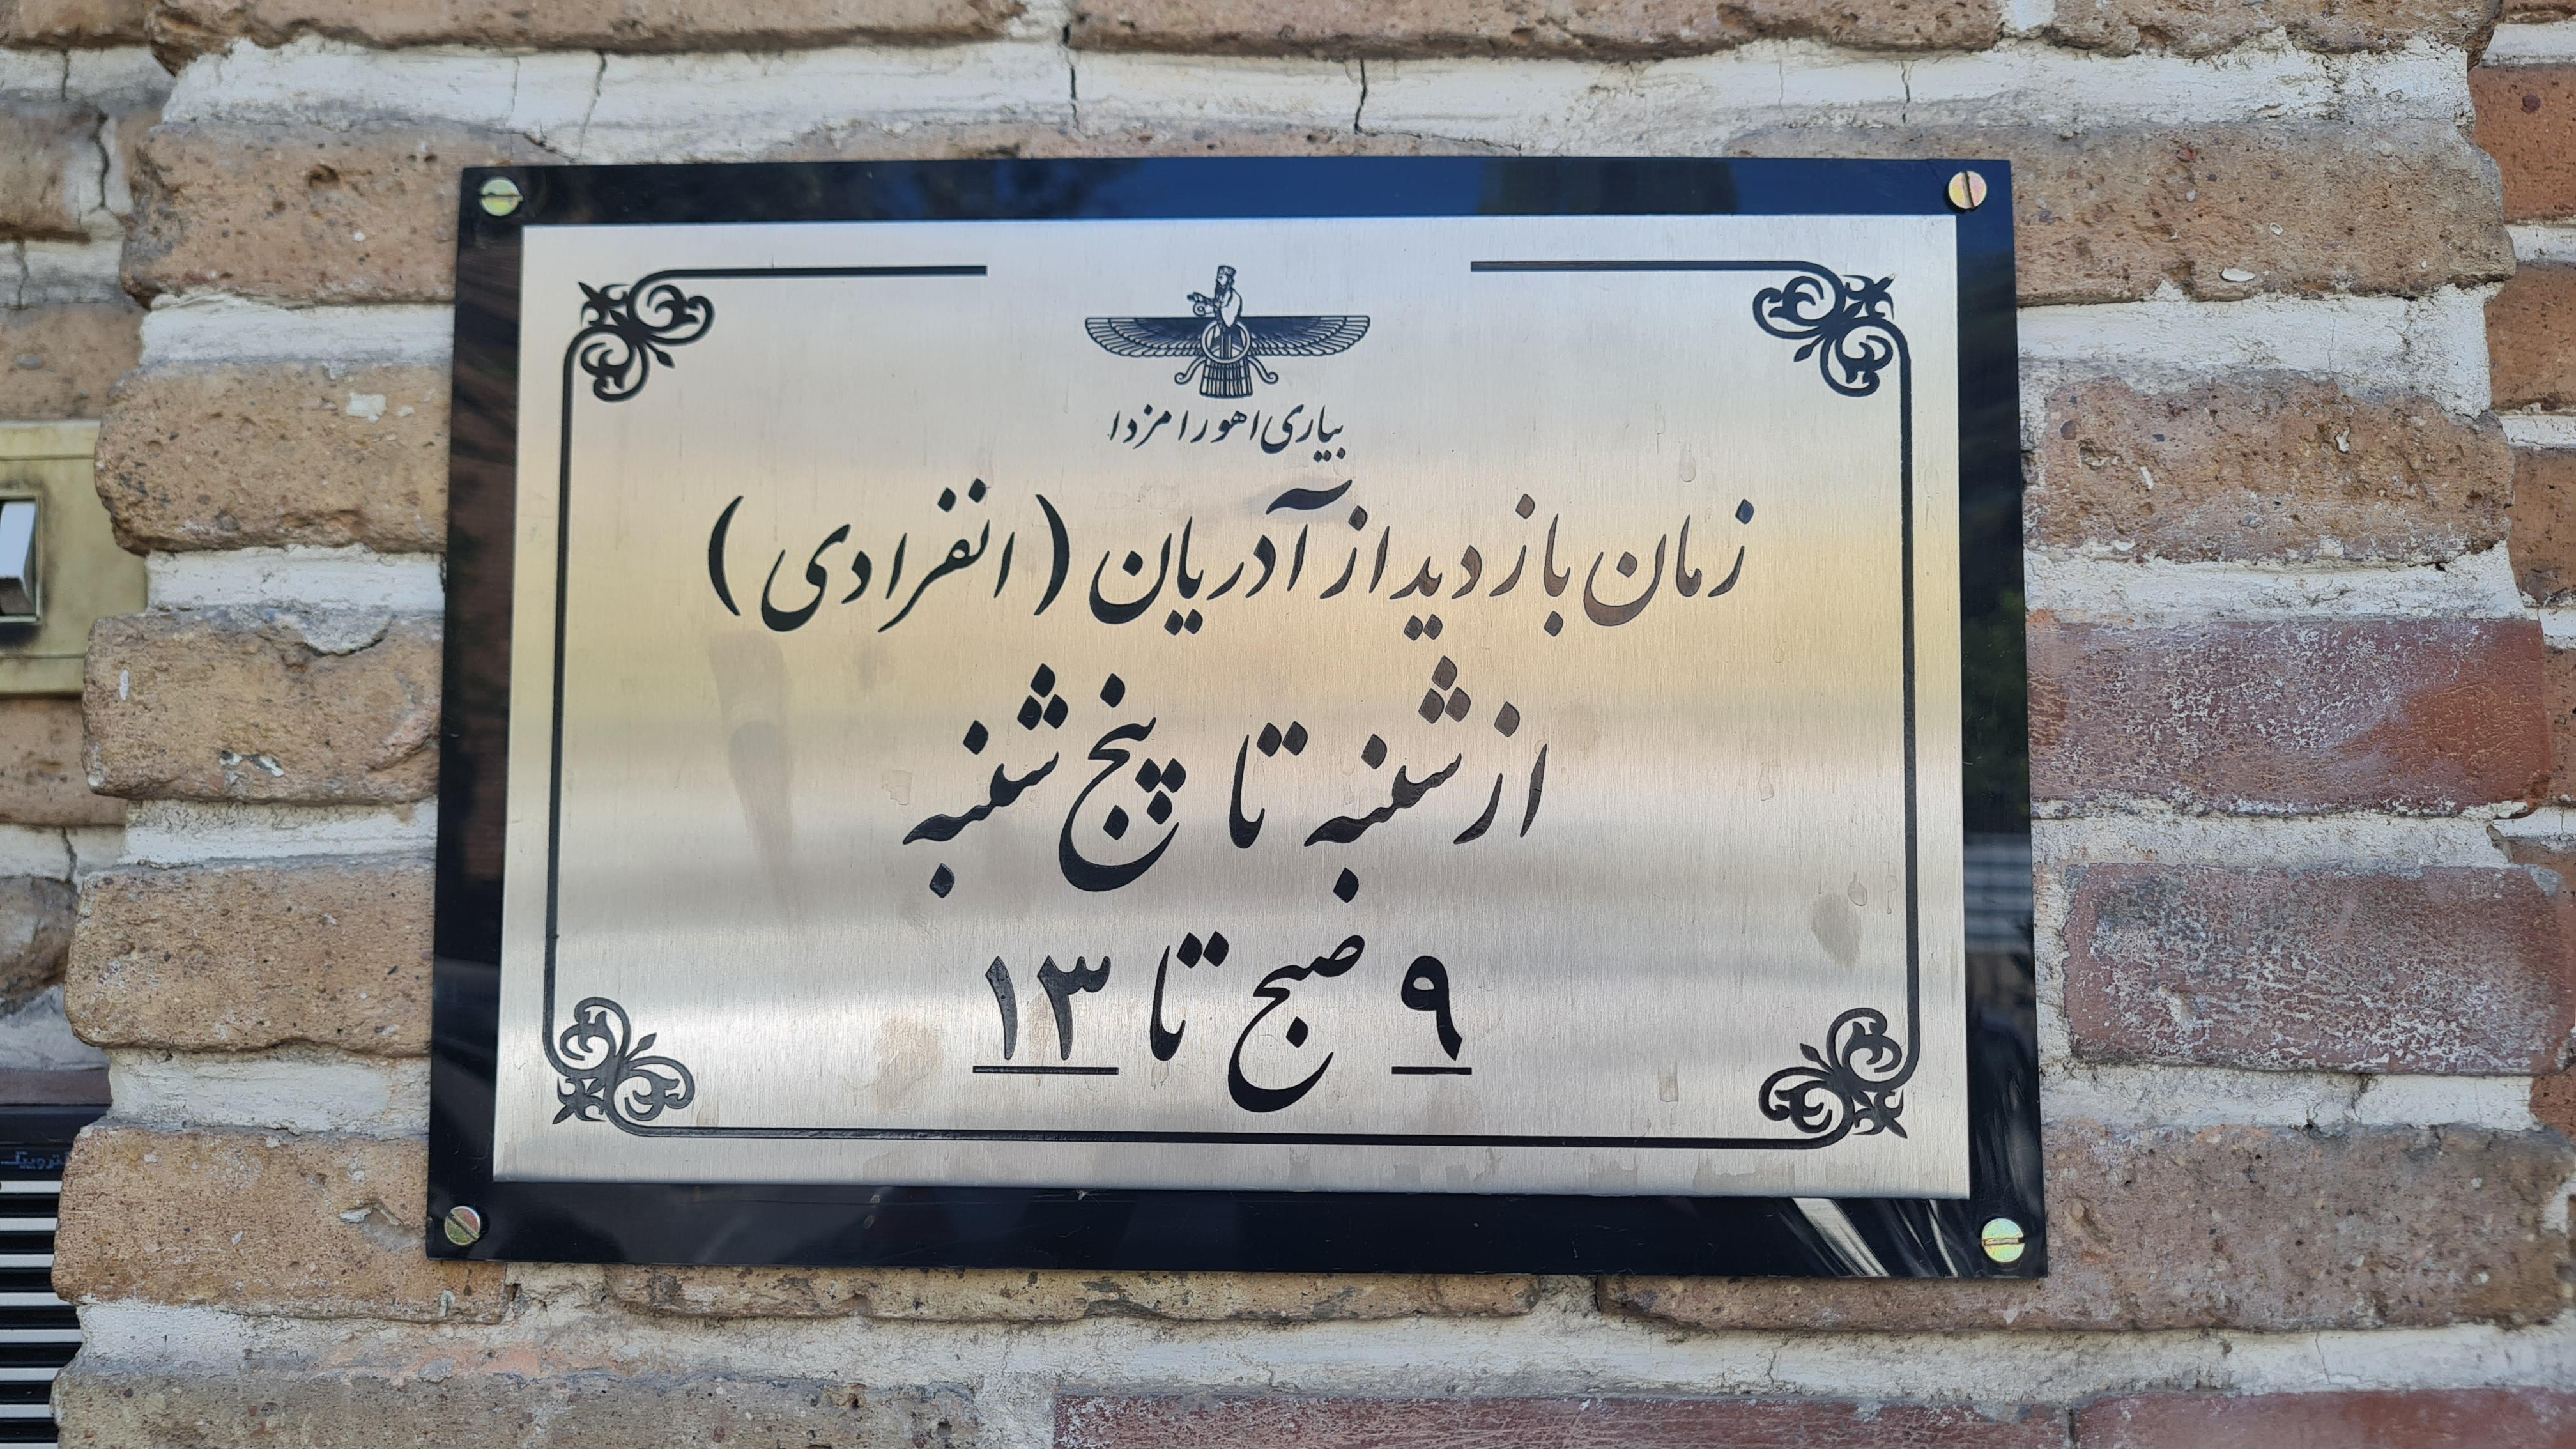 بیاری اهورا مزدا
زمان بازدید از آدریان (انفرادی)
از شنبه تا پنج شنبه
۹ صبح تا ۱۳